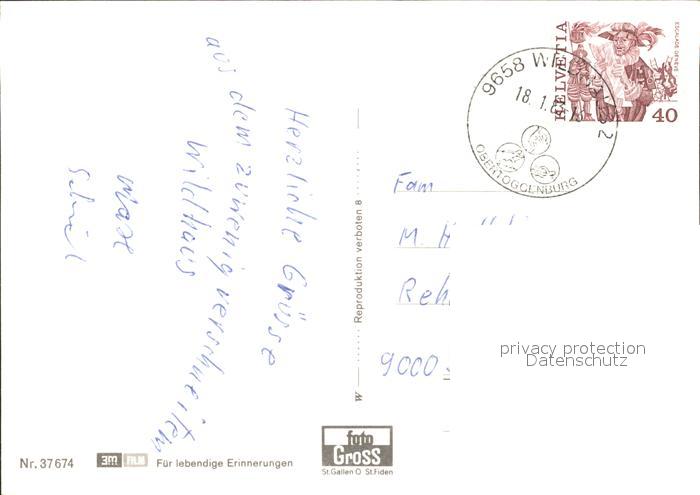 Herzliche Grüsse
aus dem zuwenig verschneiten
Wildhaus
Max
9658 WILDHAUS 2
18.1.
OBERTOGGENBURG
HELVETIA
ESCALADE GENÈVE
40
Fam
M. H
Reh
9000
privacy protection
Datenschutz
W
Reproduktion verboten 8
Nr. 37674
3M FILM
Für lebendige Erinnerungen
foto
Gross
St.Gallen O St.Fiden